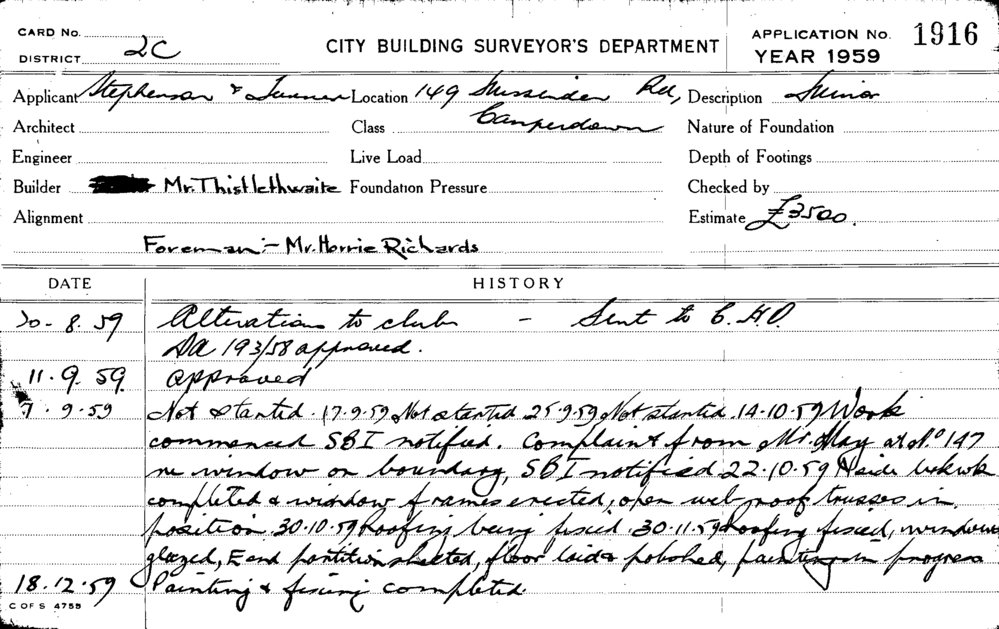 CARD No.
DISTRICT 2C
CITY BUILDING SURVEYOR'S DEPARTMENT
APPLICATION No. 1916
YEAR 1959
Applicant Stephenson & Turner Location 149 Missenden Rd, Description Minor
Architect Class Camperdown Nature of Foundation
Engineer Live Load Depth of Footings
Builder Mr. Thistlethwaite Foundation Pressure Checked by
Alignment Estimate £3500.
Foreman:- Mr. Horrie Richards
DATE HISTORY
20.8.59 Alterations to club - Sent to C.H.O.
DA 193/58 approved.
11.9.59. approved
7.9.59 Not started. 17.9.59 Not started 25.9.59 Not started. 14.10.59 Work
commenced SBI notified. Complaint from Mr. May at No 147
re window on boundary, SBI notified 22.10.59 N side bwkwk
completed & window frames erected, open web roof trusses in
position 30.10.59 Roofing being fixed 30.11.59 Roofing fixed, windows
glazed, E end partition sheeted, floor laid & polished, painting in progress
18.12.59 Painting & fixing completed.
C OF S 4755